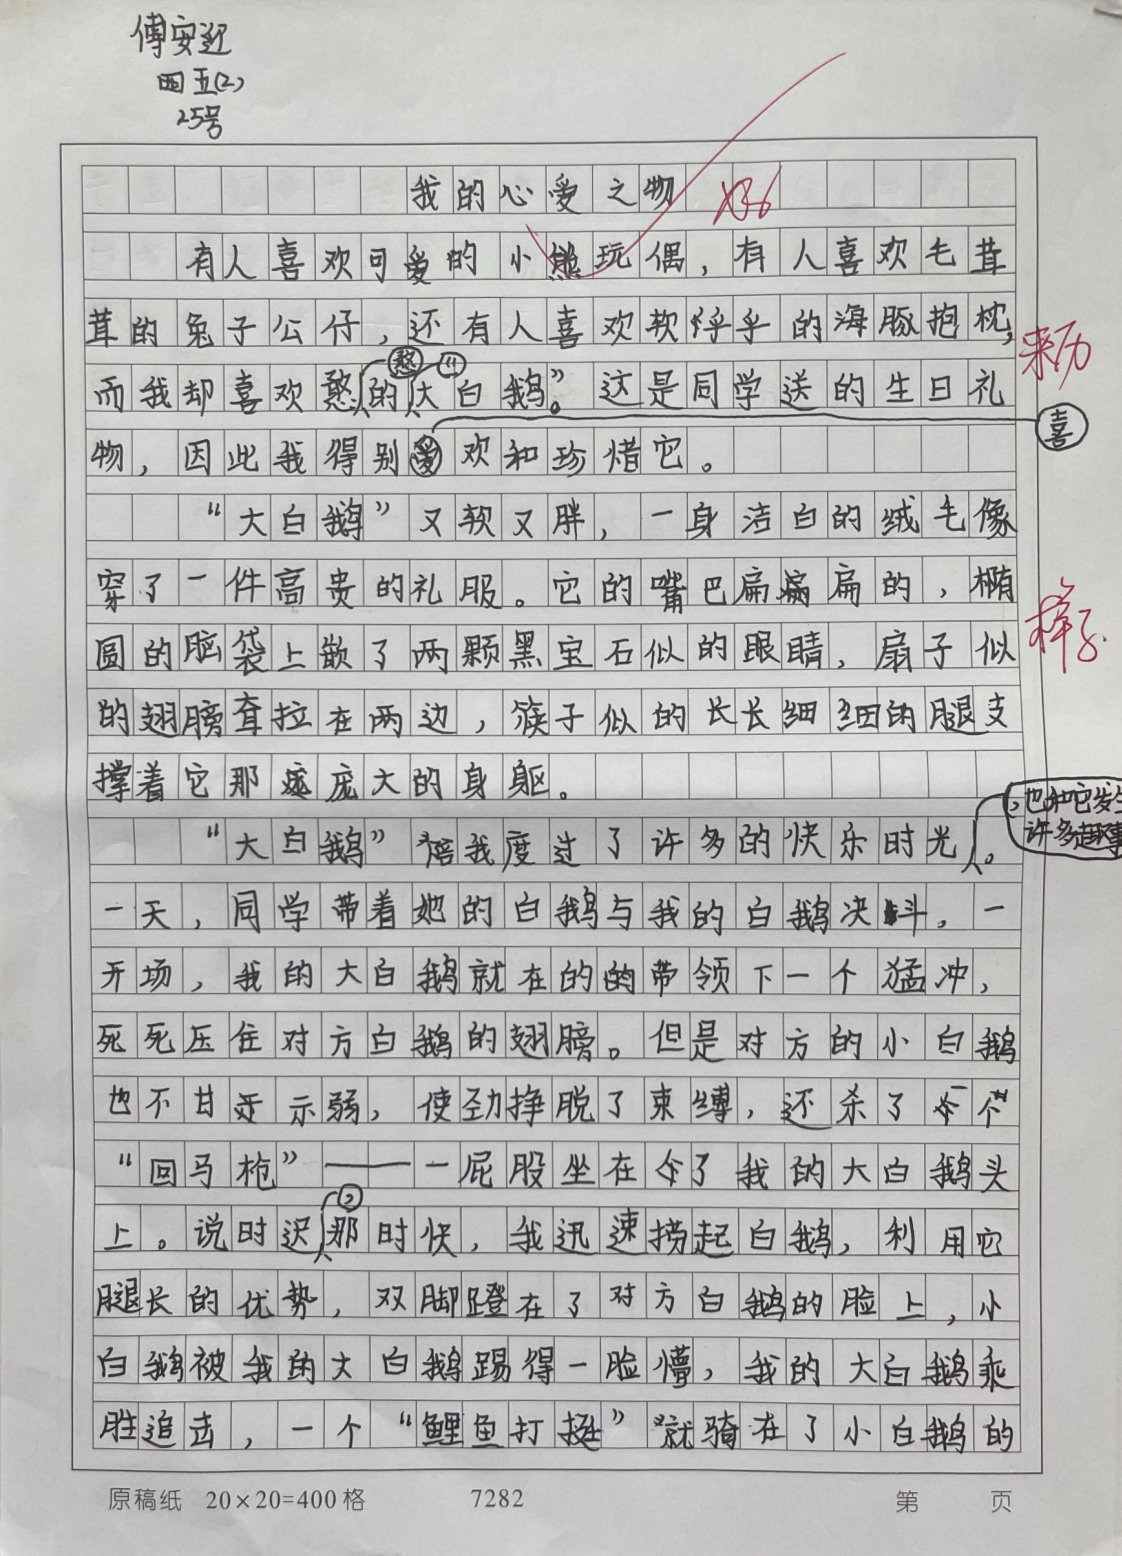 傅安迎
四五(2)
25号
我的心爱之物
好
有人喜欢可爱的小熊玩偶，有人喜欢毛茸
茸的兔子公仔，还有人喜欢软乎乎的海豚抱枕，
来历
而我却喜欢憨憨的“大白鹅”。这是同学送的生日礼
物，因此我得别喜欢和珍惜它。
“大白鹅”又软又胖，一身洁白的绒毛像
穿了一件高贵的礼服。它的嘴巴扁扁的，椭
样子
圆的脑袋上嵌了两颗黑宝石似的眼睛，扇子似
的翅膀耷拉在两边，筷子似的长长细细的腿支
撑着它那庞大的身躯。
“大白鹅”陪我度过了许多的快乐时光，也和它发生许多趣事。
一天，同学带着她的白鹅与我的白鹅决斗。一
开场，我的大白鹅就在的的带领下一个猛冲，
死死压住对方白鹅的翅膀。但是对方的小白鹅
也不甘示弱，使劲挣脱了束缚，还杀了一个
“回马枪”——一屁股坐在了我的大白鹅头
上。说时迟，那时快，我迅速捞起白鹅，利用它
腿长的优势，双脚蹬在了对方白鹅的脸上，小
白鹅被我的大白鹅踢得一脸懵，我的大白鹅乘
胜追击，一个“鲤鱼打挺”就骑在了小白鹅的
原稿纸 20×20=400格 7282 第 页